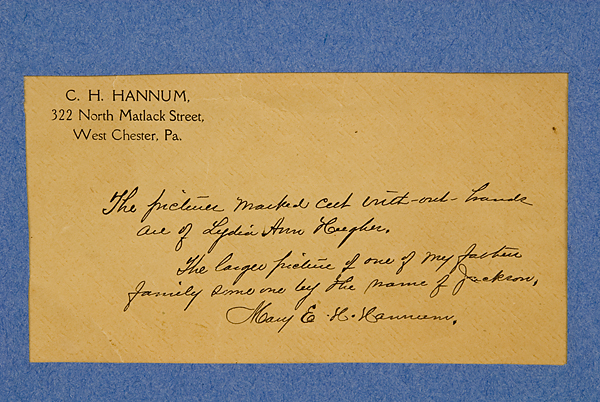 C. H. HANNUM,
322 North Matlack Street,
West Chester, Pa.
The pictures marked cut with-out-hands
are of Lydia Ann Hughes.
The larger picture of one of my father
family some one by the name of Jackson.
Mary E. H. Hannum.